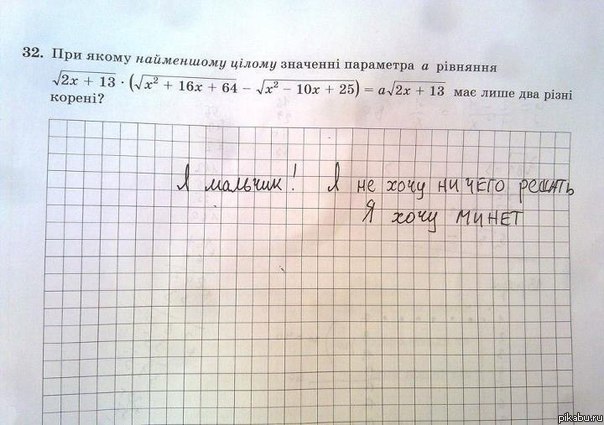 32. При якому найменшому цілому значенні параметра a рівняння
√2x + 13 · (√x² + 16x + 64 − √x² − 10x + 25) = a√2x + 13 має лише два різні
корені?
Я мальчик! Я не хочу ничего решать
Я хочу минет
pikabu.ru